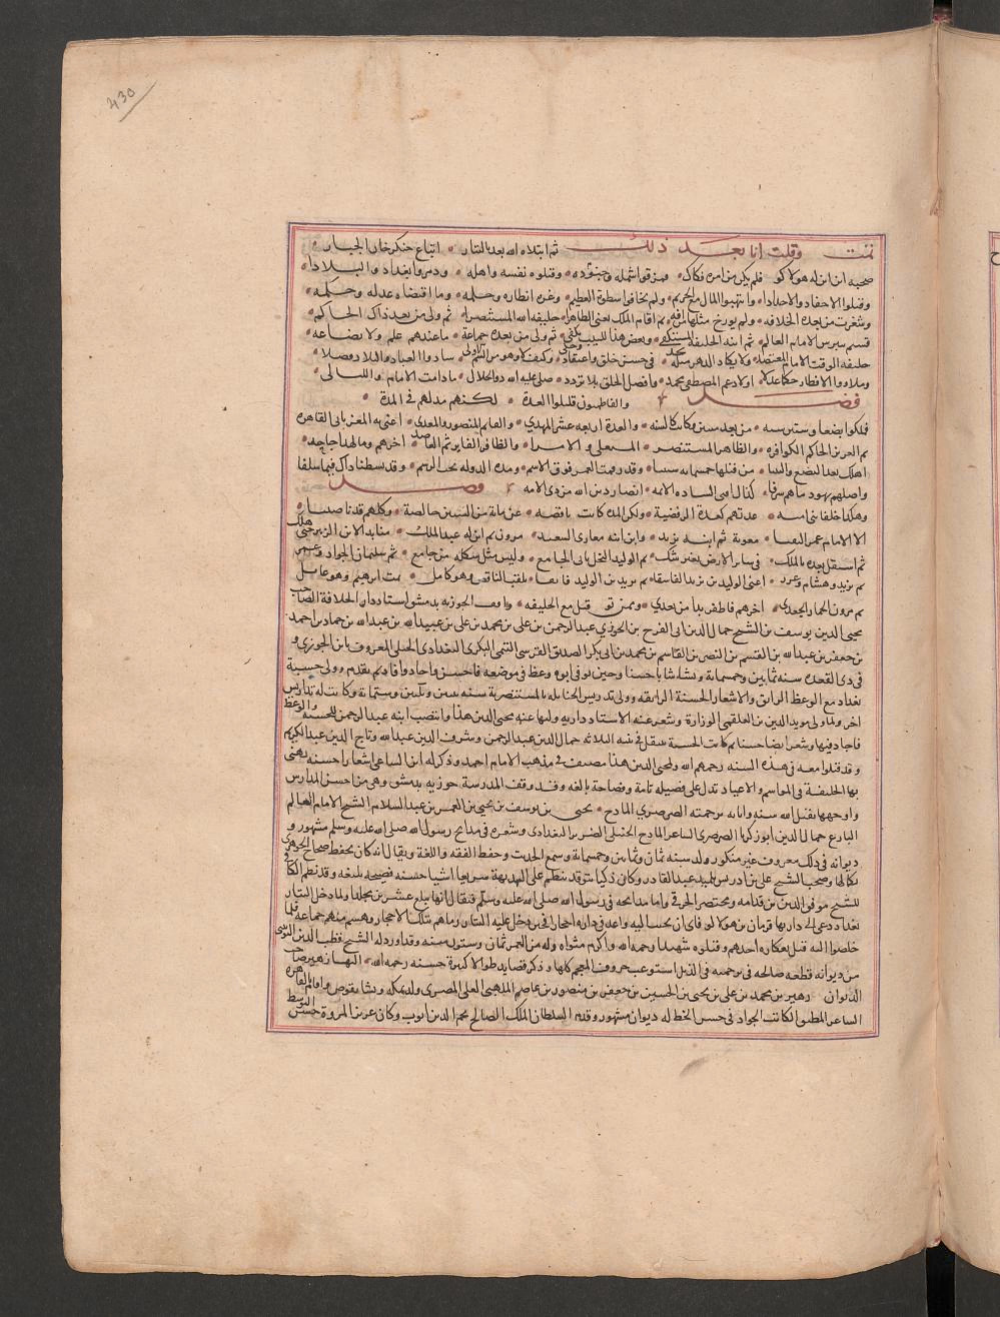 430
تمت وقلت انا بعد ذلك ثم ابتلاه الله بعد بالتتار اتباع جنكزخان الجبار
صحبه ابن ابنه هولاكو فلم يكن من امره فكاك فمزقوا شمله وجنوده وقتلوه نفسه واهله ودمروا بغداد والبلادا
وقتلوا الاحفاد والاجدادا وانتهبوا المال مع الحريم ولم يخافوا سطوة العظيم وغره انظاره وحلمه وما اقتضاه عدله وحكمه
وشغرت من بعده الخلافه ولم يورخ مثلها من افه ثم اقام الملك اعنى الظاهرا خليفة الله المستنصرا ثم ولى من بعد ذاك الحاكم
قسيم بيبرس الامام العالم ثم ابنه الخليفة المستكفي وبعض هذا للبيب يكفي ثم ولى من بعده جماعة ما عندهم علم ولا بضاعه
خليفة الوقت الامام المعتضد ولا يكاد الدهر مثله يجد في حسن خلق واعتقاد وحلى وكيف لا وهو من الشم الاولى سادوا العباد والبلاد فضلا
وملاءوا الاقطار حكما وعدلا اولاد عم المصطفى محمد وافضل الخلق بلا تردد صلى عليه الله ذو الجلال ما دامت الايام والليالي
فصل والفاطميون قليلوا العدة لكنهم مد لهم في المدة
فملكوا بضعا وستين سنه من بعد مئتين وكانت كالسنه والعدة اربعه عشر المهدي والقايم المنصور والمعدى اعنى به المعز باني القاهره
ثم العزيز الحاكم الكوافره والظاهر المستنصر المستعلى والامر والظافر الفايز ثم العاضد اخرهم وما لهذا جاحد
اهلك بعد البضع والستينا من قبلها خمسمائه سنينا
واصلهم يهود ما هم شرفا كذاك افتى الساده الائمه انصار دين الله من ذي الامه فصل
وهكذا خلفاء بنى اميه عدتهم كعدة الرفضية ولكن المدة كانت ناقصه عن مائة من السنين خالصة وكلهم قد ناصبيا
الا الامام عمر التقيا معوية ثم ابنه يزيد وابن ابنه معاوى السعيد مرون ثم ابن له عبد الملك منابذ الابن الزبير حتى هلك
ثم استقل بعده بالملك في ساير الارض بغير شك ثم الوليد النجل بانى الجامع وليس مثل شكله من جامع ثم سليمان الجواد وعمر
ثم يزيد وهشام وغدر اعنى الوليد بن يزيد الفاسقا ثم يزيد بن الوليد فايقا يلقب الناقص وهو كامل تمت ابرهيم وهو عاقل
ثم مرون الحمار الجعدي اخرهم فاظفر بذا من بعدي وممن توفى قتل مع الخليفه واقف الجوزيه بدمشق استاددار الخلافة الصاحب
محيى الدين يوسف بن الشيخ جمال الدين ابى الفرج بن الجوزي عبد الرحمن بن على بن محمد بن على بن عبيد الله بن عبد الله بن حماد بن احمد
بن جعفر بن عبد الله بن القسم بن النضر بن القاسم بن محمد بن ابى بكر الصديق القرشى التيمى البكرى البغدادى الحنبلى المعروف بابن الجوزى و
في ذى القعده سنه ثمانين وخمسمائة ونشا شابا حسنا وحين توفى ابوه وعظ في موضعه فاحسن واجاد وافاد ثم تقدم وولى حسبة
بغداد مع الوعظ الرائق والاشعار الحسنة الرائقه وولى تدريس الحنابله بالمستنصرية وكانت له تداريس
اخر ولما ولى مويد الدين بن العلقمى الوزارة وشغر عنه الاستاد داريه وليها عنه محيى الدين هذا وانتصب ابنه عبد الرحمن للحسبة والوعظ
فاجاد فيها وشعر ايضا حسنا ثم كانت الحسبة تنتقل في بنيه الثلاثه جمال الدين عبد الرحمن وشرف الدين عبد الله وتاج الدين عبد الكريم
وقد قتلوا معه في هذه السنه رحمهم الله ولمحيى الدين هذا مصنف في مذهب الامام احمد وذكر له ابن الساعى اشعارا حسنه يهنى
بها الخليفة في المواسم والاعياد تدل على فضيلة تامة وفصاحة بالغه وقد وقف المدرسة جوزيه بدمشق وهى من احسن المدارس
واوجهها تقبل الله منه واثابه برحمته الصرصري المادح يحيى بن يوسف بن يحيى بن المعمر بن عبد السلام الشيخ الامام العالم
البارع جمال الدين ابو زكريا الصرصرى الشاعر المادح الحنبلى الضرير البغدادى وشعره في مدايح رسول الله صلى الله عليه وسلم مشهور و
ديوانه في ذلك معروف غير منكور ولد سنه ثمان وثمانين وخمسمائة وسمع الحديث وحفظ الفقه واللغة ويقال انه كان يحفظ صحاح الجوهرى
بكمالها وصحب الشيخ على بن ادريس تلميذ عبد القادر وكان ذكيا يتوقد ينظم على البديهة سريعا اشياء حسنه فصيحه بليغه وقد نظم الكافى
للشيخ موفق الدين بن قدامه ومختصر الخرقى واما مدايحه في رسول الله صلى الله عليه وسلم فيقال انها تبلغ عشرين مجلدا ولما دخل التتار
بغداد دعى الى دارتها قرمان بن هولاكو فابى ان يجيب اليه واعد في داره احجارا فحين دخل عليه التتار رماهم بتلك الاحجار وهشم منهم جماعة فلما
خلصوا اليه قتل بعكازه احدهم وقتلوه شهيدا رحمه الله واكرم مثواه وله من العمر ثمان وستون سنه وقد اورد له الشيخ قطب الدين اليونينى
من ديوانه قطعه صالحه في ترجمته في الذيل استوعب حروف المعجم كلها وذكر قصايد طوالا كثيرة حسنه رحمه الله البها زهير صاحب
الديوان زهير بن محمد بن على بن يحيى بن الحسين بن جعفر بن منصور بن عاصم المهلبى العتكى المصرى ولد بمكه ونشا بقوص واقام بالقاهره
الشاعر المطبق الكاتب الجواد في حسن الخط له ديوان مشهور وقدم السلطان الملك الصالح نجم الدين ايوب وكان غزير المروة حسن التوسط